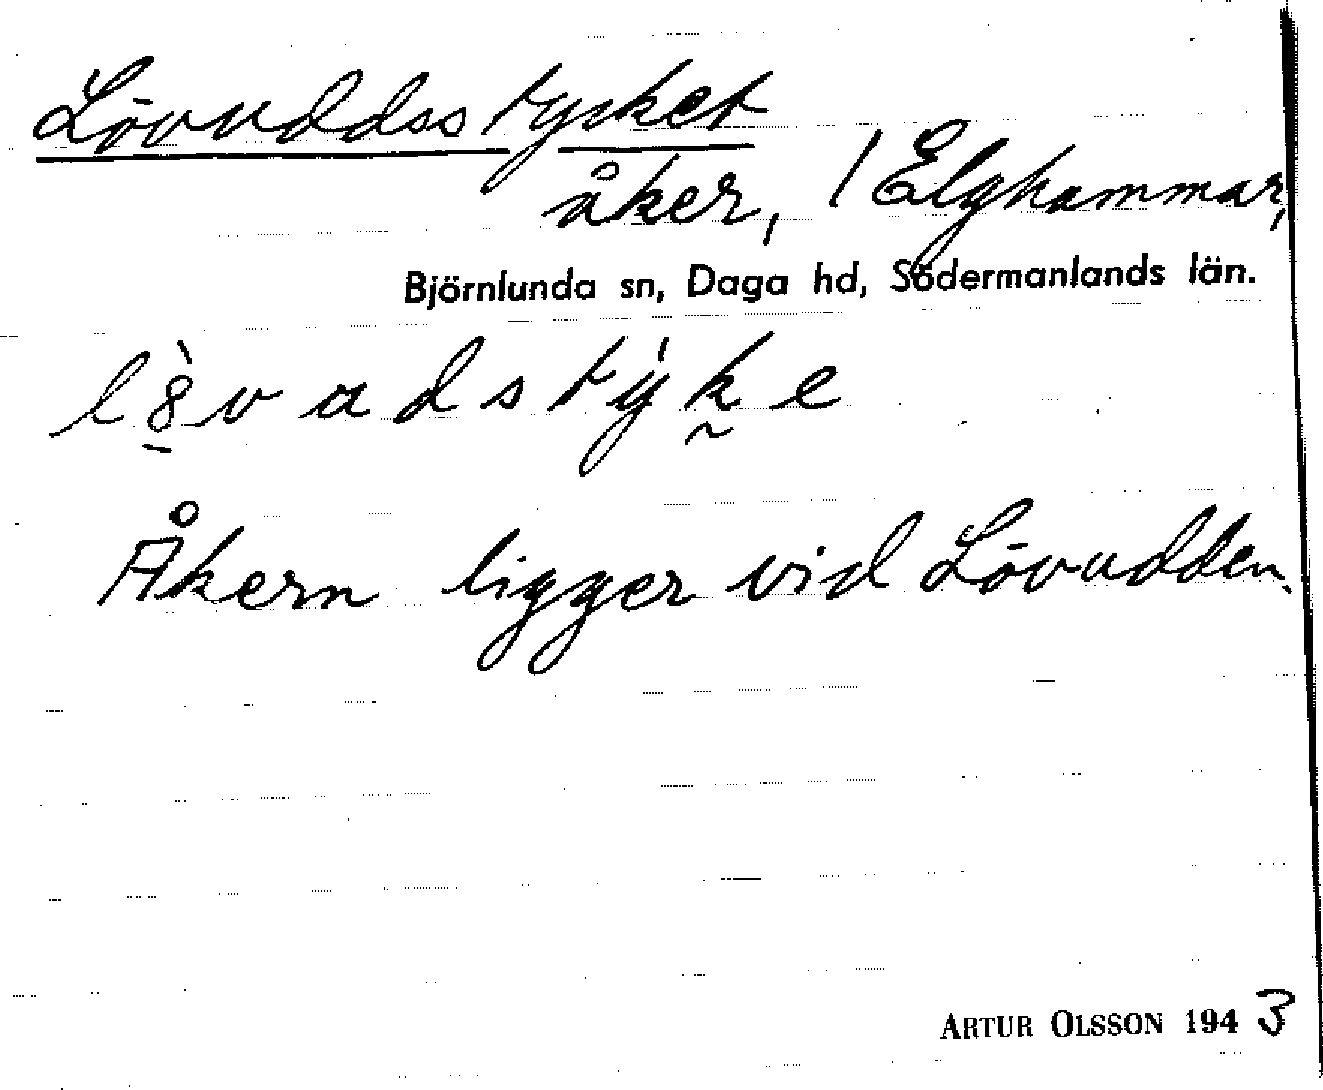 Lövuddsstycket
åker, / Elghammar,
Björnlunda sn, Daga hd, Södermanlands län.
l8̱̀vadstýk̰e
Åkern ligger vid Lövudden.
ARTUR OLSSON 1943